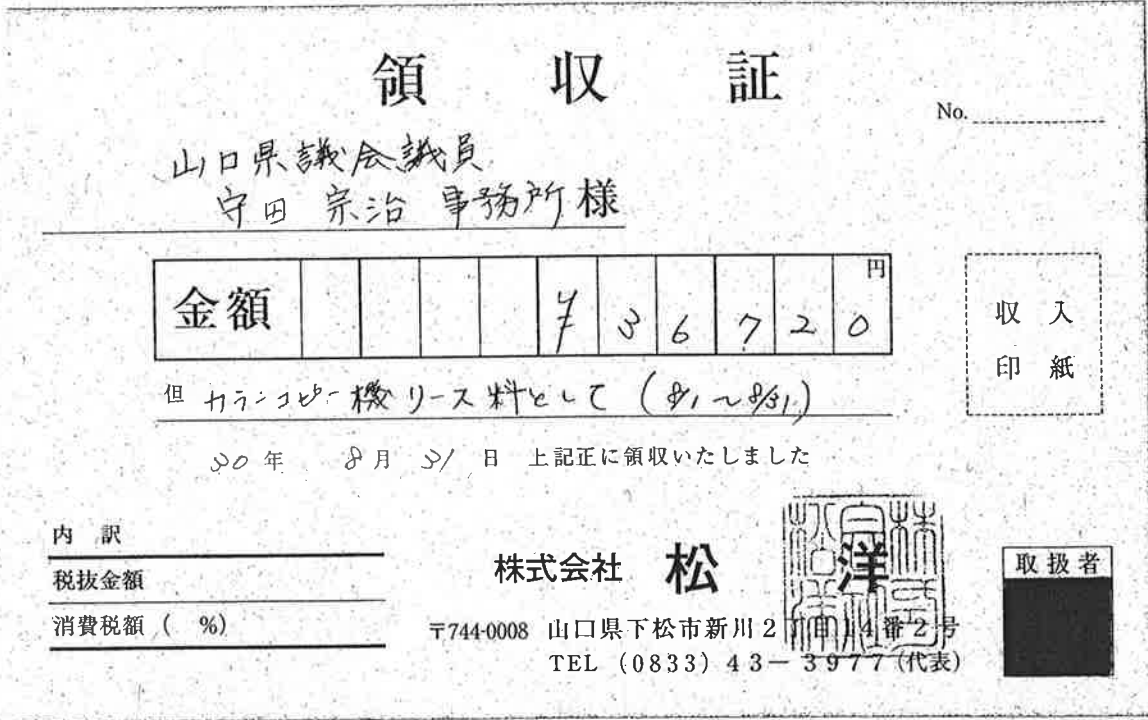 領 収 証
No.
山口県議会議員
守田 宗治 事務所 様
金額 ¥36720 円
収 入
印 紙
但 カラーコピー機リース料として (8/1〜8/31)
30年 8月 31日 上記正に領収いたしました
内 訳
税抜金額
消費税額 ( %)
株式会社 松 洋
〒744-0008 山口県下松市新川2丁目14番2号
TEL (0833) 43-3977 (代表)
取扱者